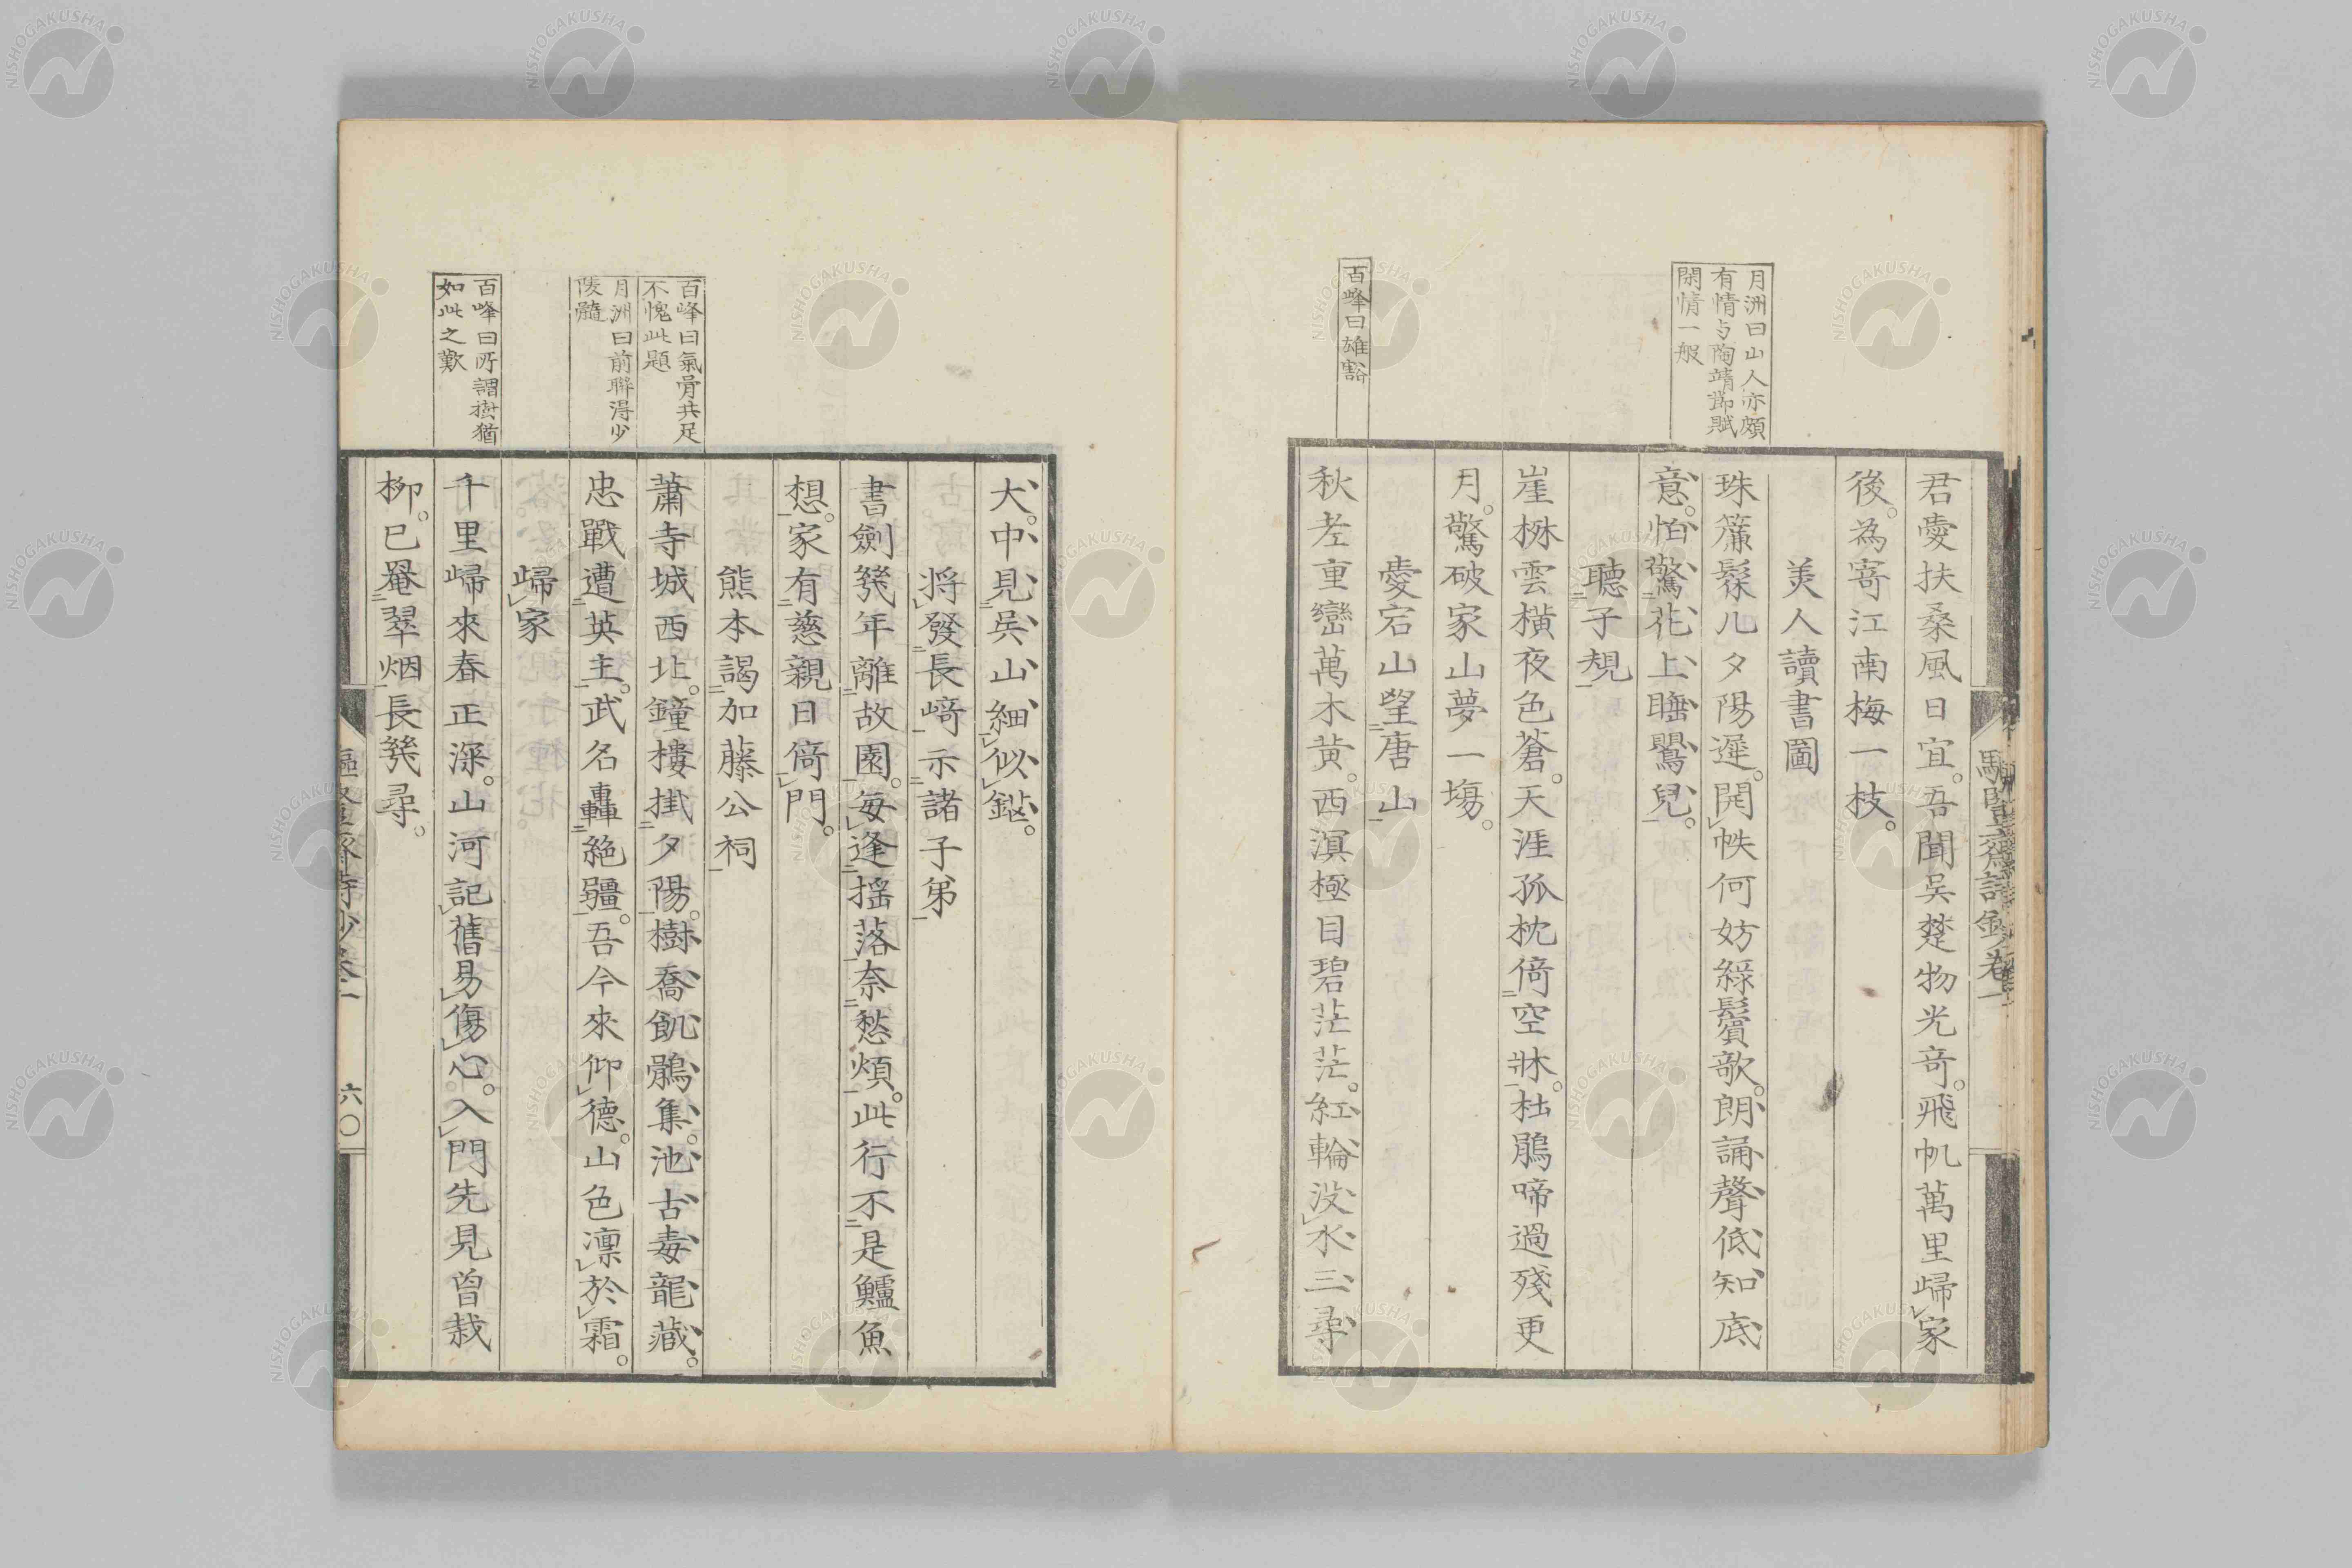 月洲曰山人亦頗
有情与陶靖節賦
閑情一般
百峰曰雄豁
君愛扶桑風日宜。吾聞吳楚物光奇。飛帆萬里歸家
後。為寄江南梅一枝。
美人讀書圖
珠簾鬆儿夕陽遲。開帙何妨綠鬢欹。朗誦聲低知底
意。怕驚花上睡鸎兒。
聽子規
崖楙雲橫夜色蒼。天涯孤枕倚空牀。杜鵑啼過殘更
月。驚破家山夢一場。
愛宕山望唐山
秋老重巒萬木黃。西溟極目碧茫茫。紅輪没水三尋
大。中見吳山細似鍼。
將發長崎示諸子弟
書劍幾年離故園。每逢搖落奈愁煩。此行不是鱸魚
想。家有慈親日倚門。
熊本謁加藤公祠
蕭寺城西北。鐘樓掛夕陽。樹喬飢鶻集。池古毒龍藏。
忠戰遭英主。武名轟絕疆。吾今來仰德。山色凛於霜。
歸家
千里歸來春正深。山河記舊易傷心。入門先見曾栽
柳。已罨翠烟長幾尋。
百峰曰氣骨共足
不愧此題
月洲曰前聯得少
陵髓
百峰曰所謂樹猶
如此之歎
齋詩鈔卷一
六〇
NISHOGAKUSHA